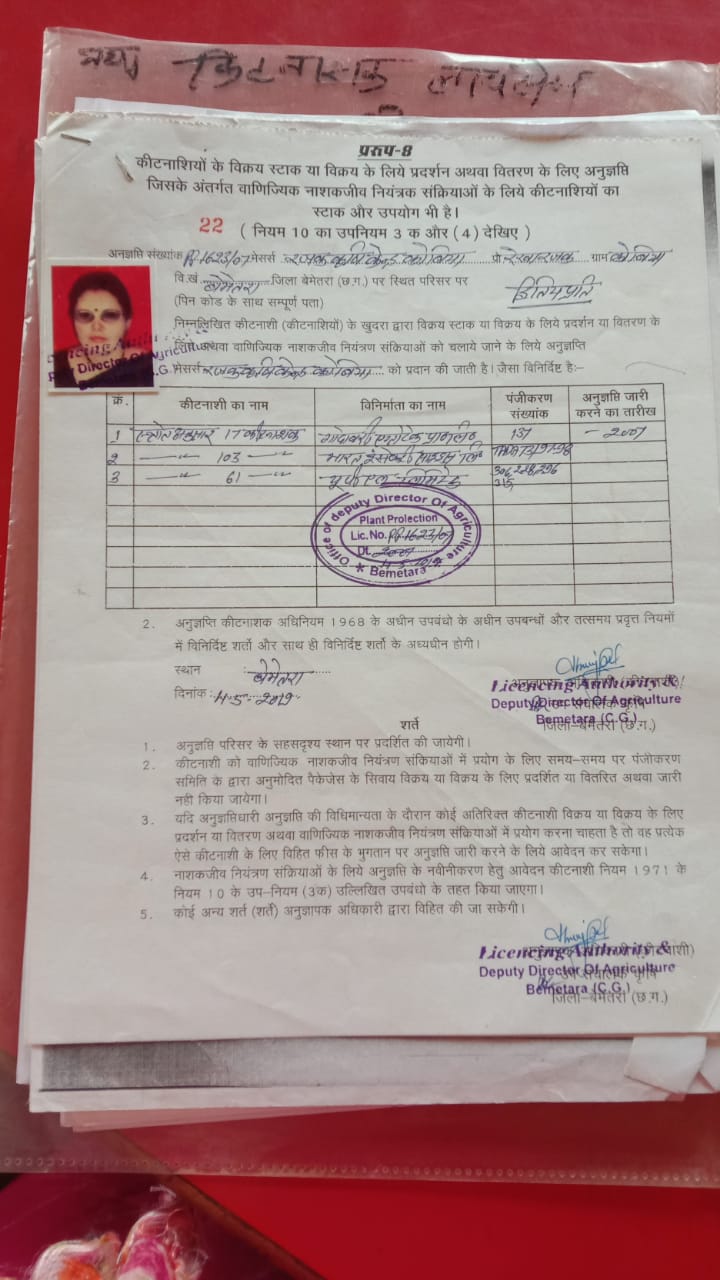 नया किटनाशक लायसेंस
प्ररूप-8
कीटनाशियों के विक्रय स्टाक या विक्रय के लिये प्रदर्शन अथवा वितरण के लिए अनुज्ञप्ति
जिसके अंतर्गत वाणिज्यिक नाशकजीव नियंत्रक संक्रियाओं के लिये कीटनाशियों का
स्टाक और उपयोग भी है।
22 ( नियम 10 का उपनियम 3 क और (4) देखिए )
अनुज्ञप्ति संख्यांक PP-1623/07 मेसर्स रजक कृषि केन्द्र कोबिया प्रो रेखा रजक ग्राम कोबिया
वि.खं. बेमेतरा जिला बेमेतरा (छ.ग.) पर स्थित परिसर पर
(पिन कोड के साथ सम्पूर्ण पता) द्वितीय प्रति
निम्नलिखित कीटनाशी (कीटनाशियों) के खुदरा द्वारा विक्रय स्टाक या विक्रय के लिये प्रदर्शन या वितरण के
लिये अथवा वाणिज्यिक नाशकजीव नियंत्रण संक्रियाओं को चलाये जाने के लिए अनुज्ञप्ति
मेसर्स रजक कृषि केन्द्र कोबिया को प्रदान की जाती है। जैसा विनिर्दिष्ट है:-
क्र. कीटनाशी का नाम विनिर्माता का नाम पंजीकरण संख्यांक अनुज्ञप्ति जारी करने का तारीख
1 17 कीटनाशक 137 - 2007
2 —"— 103 —"—
3 —"— 61 —"—
Office of deputy Director Of Agriculture
Plant Protection
Lic. No. PP-1623/07
Dt. 2007
Bemetara
2. अनुज्ञप्ति कीटनाशक अधिनियम 1968 के अधीन उपबंधो के अधीन उपबन्धों और तत्समय प्रवृत्त नियमों
में विनिर्दिष्ट शर्तो और साथ ही विनिर्दिष्ट शर्तो के अध्यधीन होगी।
स्थान : बेमेतरा
दिनांक : 4-5-2019
Licencing Authority &
Deputy Director Of Agriculture
Bemetara (C.G.)
जिला-बेमेतरा (छ.ग.)
शर्ते
1. अनुज्ञप्ति परिसर के सहसदृश्य स्थान पर प्रदर्शित की जायेगी।
2. कीटनाशी को वाणिज्यिक नाशकजीव नियंत्रण संकियाओं में प्रयोग के लिए समय-समय पर पंजीकरण
समिति के द्वारा अनुमोदित पैकेजेस के सिवाय विक्रय या विक्रय के लिए प्रदर्शित या वितरित अथवा जारी
नही किया जायेगा।
3. यदि अनुज्ञप्तिधारी अनुज्ञप्ति की विधिमान्यता के दौरान कोई अतिरिक्त कीटनाशी विक्रय या विक्रय के लिए
प्रदर्शन या वितरण अथवा वाणिज्यिक नाशकजीव नियंत्रण संक्रियाओं में प्रयोग करना चाहता है तो वह प्रत्येक
ऐसे कीटनाशी के लिए विहित फीस के भुगतान पर अनुज्ञप्ति जारी करने के लिये आवेदन कर सकेगा।
4. नाशकजीव नियंत्रण संक्रियाओं के लिये अनुज्ञप्ति के नवीनीकरण हेतु आवेदन कीटनाशी नियम 1971 के
नियम 10 के उप-नियम (3क) उल्लिखित उपबंधो के तहत किया जाएगा।
5. कोई अन्य शर्त (शर्ते) अनुज्ञापक अधिकारी द्वारा विहित की जा सकेगी।
Licencing Authority &
Deputy Director Of Agriculture
Bemetara (C.G.)
जिला-बेमेतरा (छ.ग.)